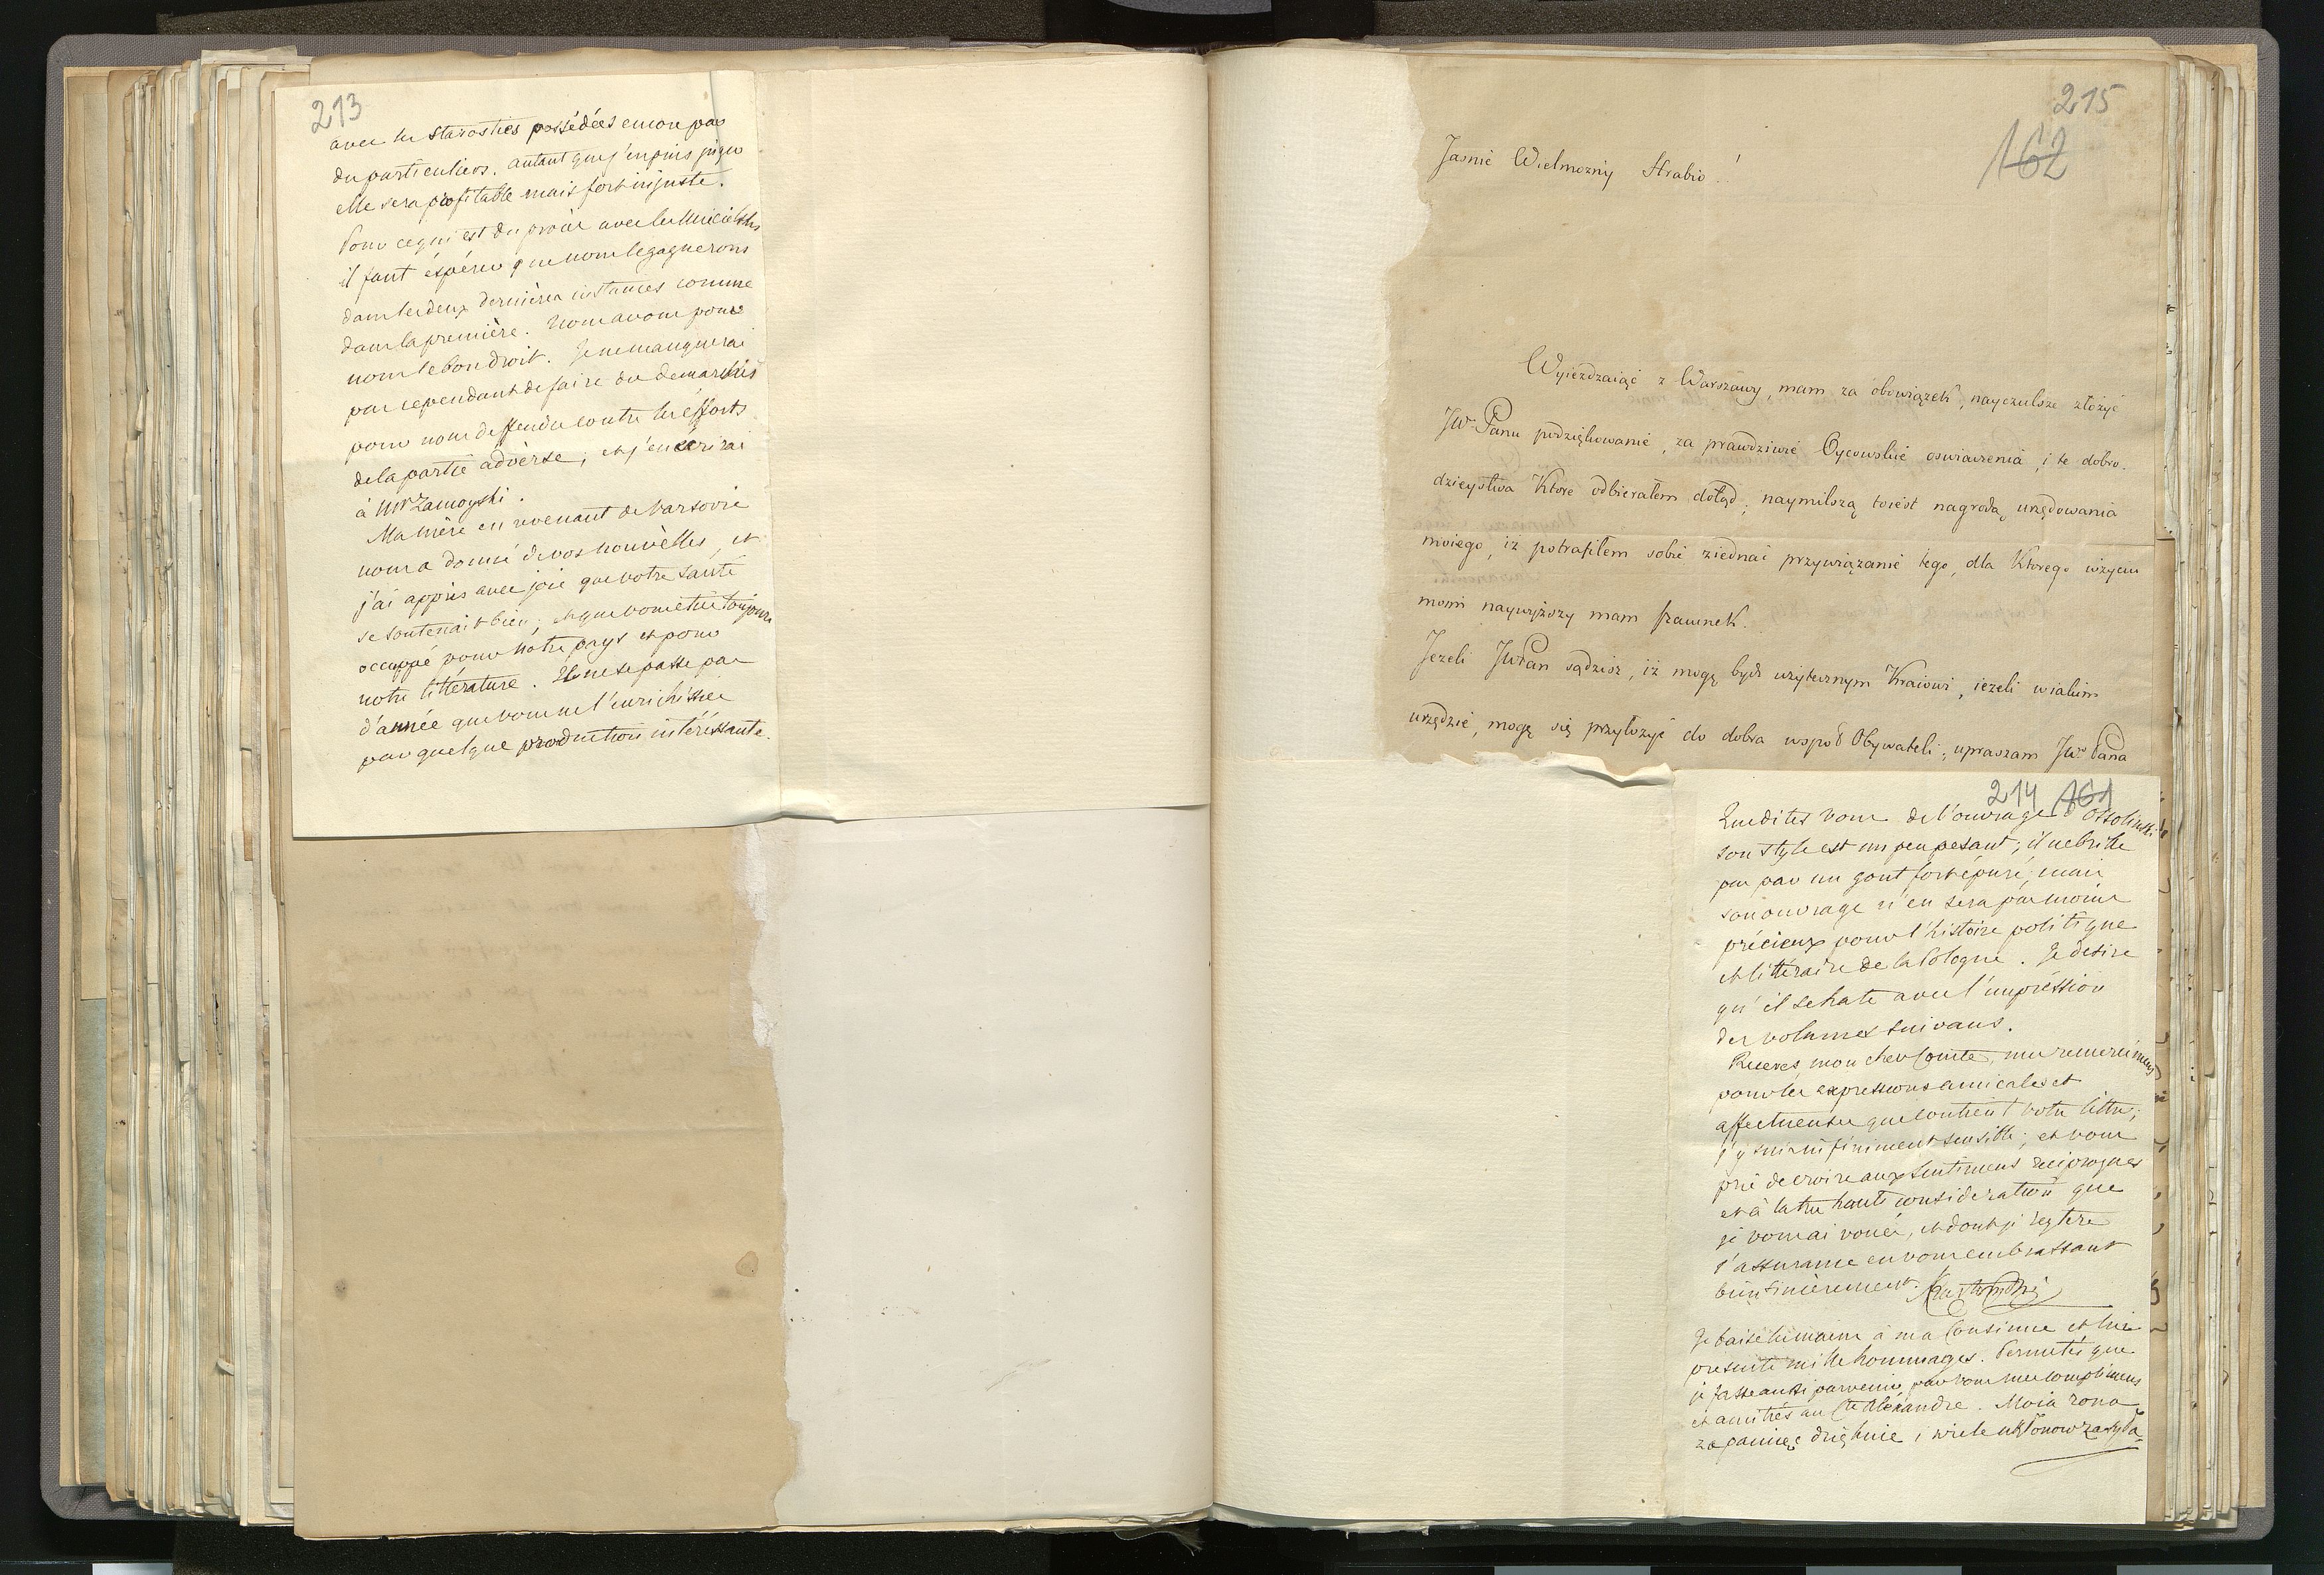 213
avec les Starosties possédées encore par
des particuliers. autant que j'en puis juger
elle sera profitable mais fort injuste.
Pour ce qui est du procès avec les Mielzinskis
il faut éspérer que nous le gagnerons
dans les deux dernières instances comme
dans la première. Nous avons pour
nous le bon droit. Je ne manquerai
pas cependant de faire des demarches
pour nous deffendre contre les efforts
de la partie adverse; et j'en écrirai
à Mr Zamoyski.
Ma mère en revenant de Varsovie
nous a donné de vos nouvèlles, et
j'ai appris avec joie que votre santé
se soutenait bien; et que vous étiés toujours
occuppé pour notre pays et pour
notre littérature. Il ne se passe pas
d'année que vous ne l'enrichissiés
par quelque production intéréssante.
215
162
Jasnie Wielmozny Hrabio!
Wyieżdzaiąc z Warszawy, mam za obowiązek, nayczulsze złożyć
JW Panu podziękowanie, za prawdziwie Oycowskie oswiadczenia, i te dobro-
dzieystwa Ktore odbierałem dotąd; naymilszą toiest nagrodą urzędowania
moiego, iż potrafiłem sobie ziednać przywiązanie tego, dla Ktorego wżyciu
moim naywyższy mam szacunek.
Jezeli JWPan sądzisz, iż mogę bydz użytecznym Kraiowi, ieżeli w iakim
urzędzie, mogę się przyłożyć do dobra wspoł Obywateli, upraszam JW. Pana
214 161
Que dites vous de l'ouvrage d'Ossolinski
son style est un peu pesant; il ne brille
pas par un gout fort épuré; mais
son ouvrage n'en sera pas moins
précieux pour l'histoire politique
et littéraire de la Pologne. Je desire
qu'il se hate avec l'impréssion
des volumes suivans.
Recevés, mon cher Comte, mes remercimens
pour les expressions amicales et
affectueuses que contient votre lettre;
j'y suis infiniment sensible; et vous
prie de croire aux sentimens reciproques
et à la tres haute consideration que
je vous ai vouée, et dont je reytere
l'assurance en vous embrassant
bien sincèrement.
Je baise les mains à ma Cousine et lui
presente mille hommages. Permetés que
je fasse aussi parvenir par vous mes complimens
et amitiés au Cte Alexandre. Moia zona
za pamięć dziękuie, i wiele ukłonow zasyła